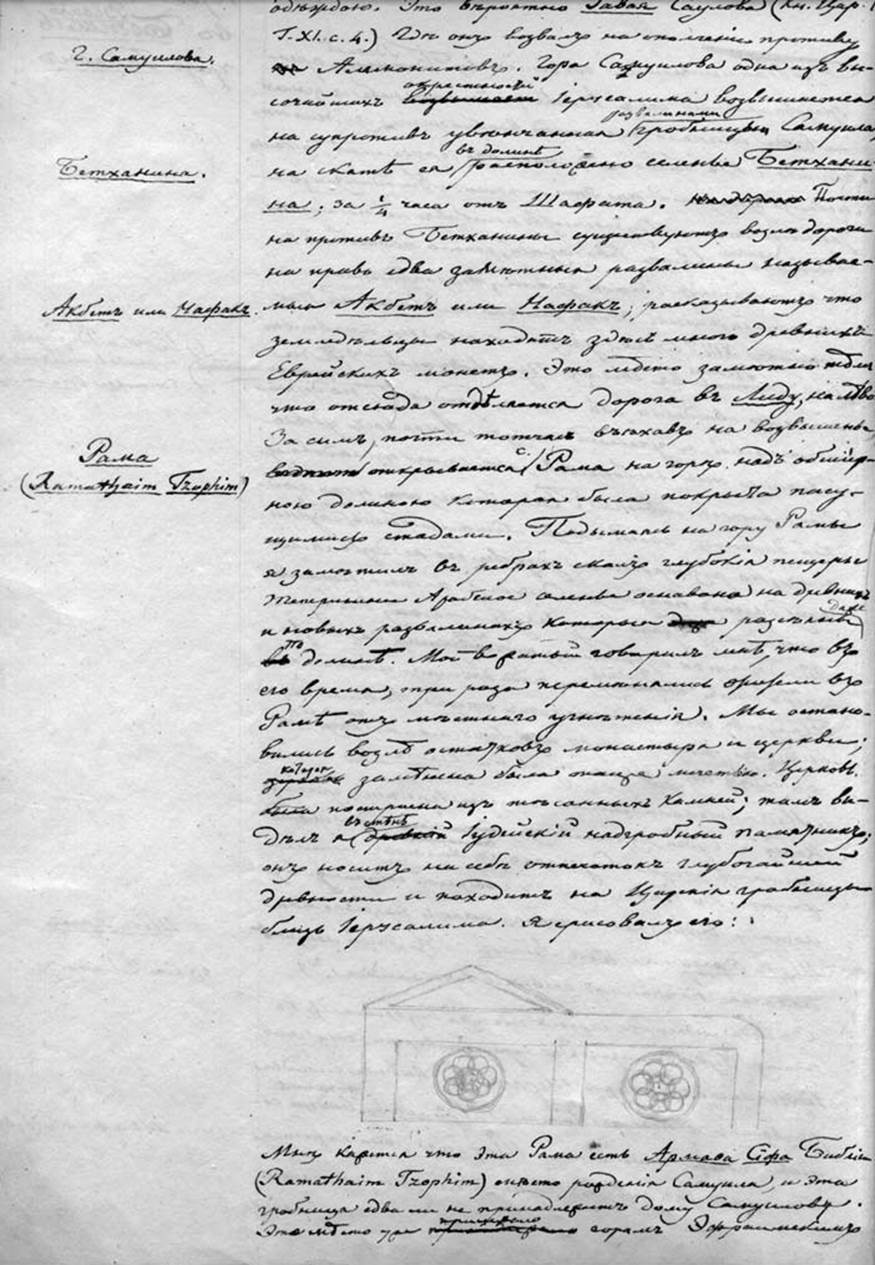 одѣждою. Это вѣроятно Гавая Саулова (Кн. Цар. I
г. XI. с. 4.) Гдѣ онъ возвалъ на ополченіе противу
Г. Самуилова.
Аммонитовъ. Гора Самуилова одна изъ вы-
сочайшихъ окрестностей Іерусалима возвышается
развалинами
на супротивъ увѣнчанная гробницы Самуила,
Бетханина.
на скатѣ ея въ долинѣ расположено селенье Бетхани-
на; за ¼ часа отъ Шафата. Почти
на противъ Бетханины существуютъ возлѣ дороги
на право едва замѣтныя развалины называе-
Акбетъ или Нафакъ.
мыя Акбетъ или Нафакъ; расказываютъ что
земледѣльцы находятъ здѣсь много древнихъ
Еврейскихъ монетъ. Это мѣсто замѣтно тѣмъ
что отсюда отдѣляется дорога въ Лиду, на лѣво
За симъ, почти тотчасъ въѣхавъ на возвышенье,
Рама
(Ramathaim Tzophim)
открывается Рама на горѣ надъ обшир-
ною долиною которая была покрыта пасу-
щимися стадами. Подымаясь на гору Рамы
я замѣтилъ въ ребрахъ скалъ глубокія пещеры
Теперешнее Арабское селенье основано на древнихъ
и новыхъ развалинахъ которыя разсѣяны даже
по долинѣ. Мой вожатый говорилъ мнѣ, что въ
его время, три раза перемѣнялись жители въ
Рамѣ отъ мѣстнаго угнѣтенія. Мы остано-
вились возлѣ остатковъ монастыря и церкви;
которая замѣнена была также мечетью. Церковь
была построена изъ тесанныхъ камней; тамъ ви-
дѣлъ я въ стѣнѣ Іудейскій надгробный памятникъ;
онъ носитъ на себѣ отпечатокъ глубочайшей
древности и походитъ на Царскія гробницы
близь Іерусалима. Я срисовалъ его:
Мнѣ кажется что эта Рама есть Армаѳа Сіфа Библіи
(Ramathaim Tzophim) мѣсто рожденія Самуила, и эта
гробница едва ли не принадлежитъ дому Самуилову.
Это мѣсто уже горамъ Эфраимскимъ